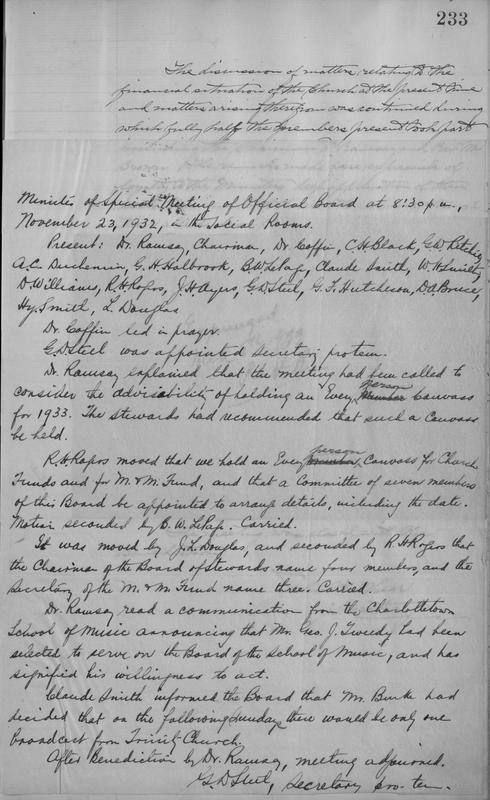 233
The discussion of matters relating to the
financial situation of the Church at the present time
and matters arising therefrom was continued during
which fully half the members present took part
Minutes of Special Meeting of Official Board at 8:30 p.m.,
November 23, 1932, in the Social Rooms.
Present: Dr. Ramsay, Chairman, Dr. Coffin, C.H. Black, G.W. Ritchie,
A.C. G.H. Holbrook, B.W. LePage, Claude Smith, W.H.
D. Williams, R.H. Rogers, J.H. Ayers, G.D. Steel, G.F. Hutcheson, D.A. Bruce,
Hy. Smith, L. Douglas
Dr. Coffin led in prayer.
G.D. Steel was appointed secretary protem.
Dr. Ramsay explained that the meeting had been called to
person
consider the advisability of holding an Every Member Canvass
for 1933. The stewards had recommended that such a Canvass
be held.
person
R.H. Rogers moved that we hold an Every Member Canvass for Church
Funds and for M. & M. Fund, and that a Committee of seven members
of this Board be appointed to arrange details, including the date.
Motion seconded by B.W. LePage. Carried.
It was moved by J.L. Douglas, and seconded by R.H. Rogers that
the Chairman of the Board of Stewards name four members, and the
Secretary of the M. & M. Fund name three. Carried.
Dr. Ramsay read a communication from the Charlottetown
School of Music announcing that Mr. Geo. J. Tweedy had been
selected to serve on the Board of the School of Music, and has
signified his willingness to act.
Claude Smith informed the Board that Mr. Burke had
decided that on the following Sunday there would be only one
broadcast from Trinity Church.
After benediction by Dr. Ramsay, meeting adjourned.
G.D. Steel, Secretary pro-tem.